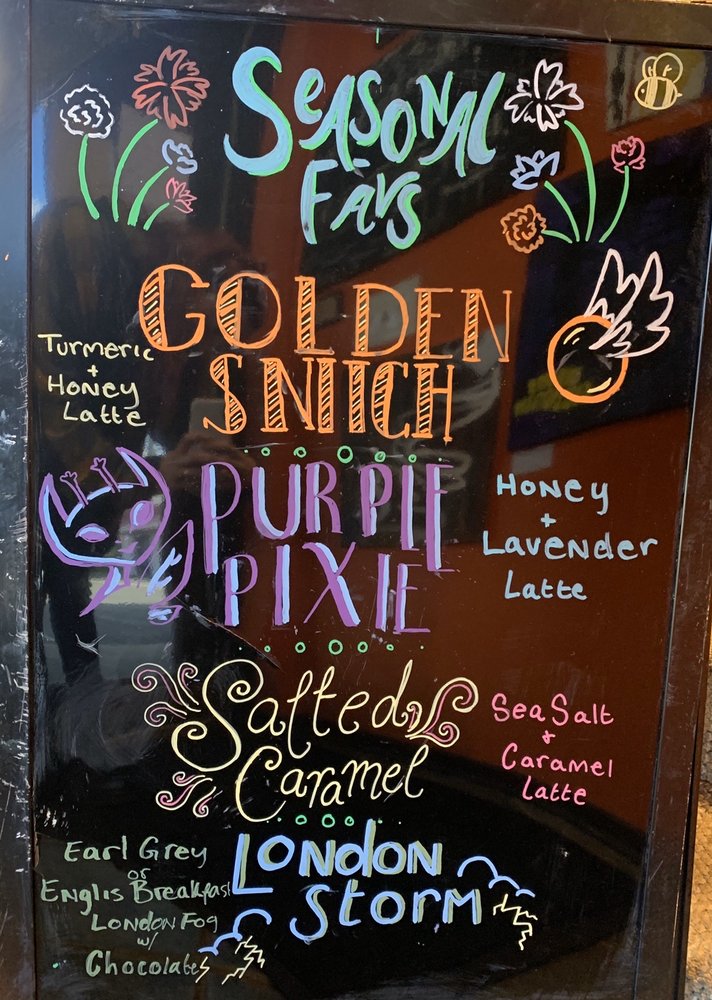 SEASONAL
FAVS
GOLDEN
SNITCH
Turmeric
+
Honey
Latte
PURPLE
PIXIE
Honey
+
Lavender
Latte
Salted
Caramel
Sea Salt
+
Caramel
Latte
LONDON
STORM
Earl Grey
or
Englis Breakfast
London Fog
w/
Chocolate